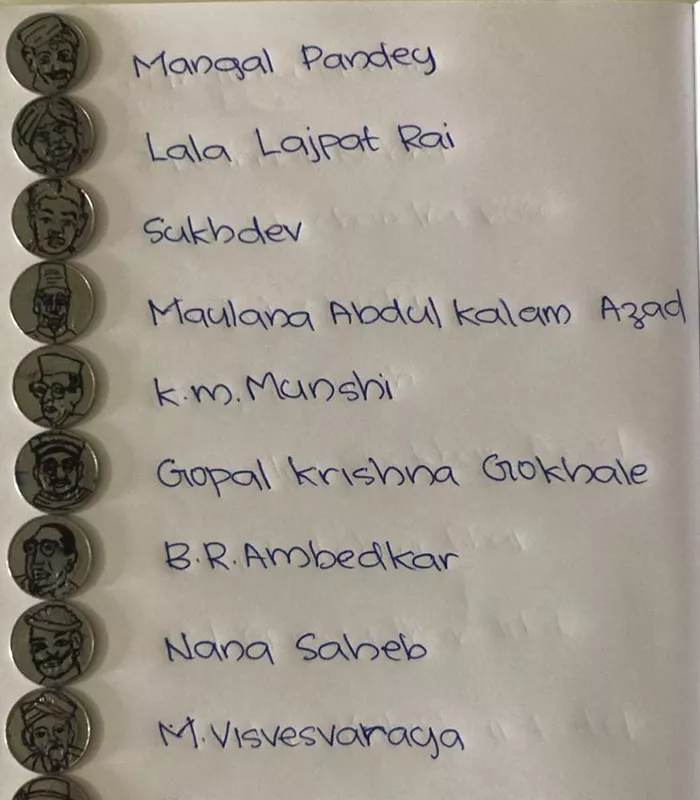 Mangal Pandey
Lala Lajpat Rai
Sukhdev
Maulana Abdul Kalam Azad
K.M.Munshi
Gopal Krishna Gokhale
B.R.Ambedkar
Nana Saheb
M.Visvesvaraya